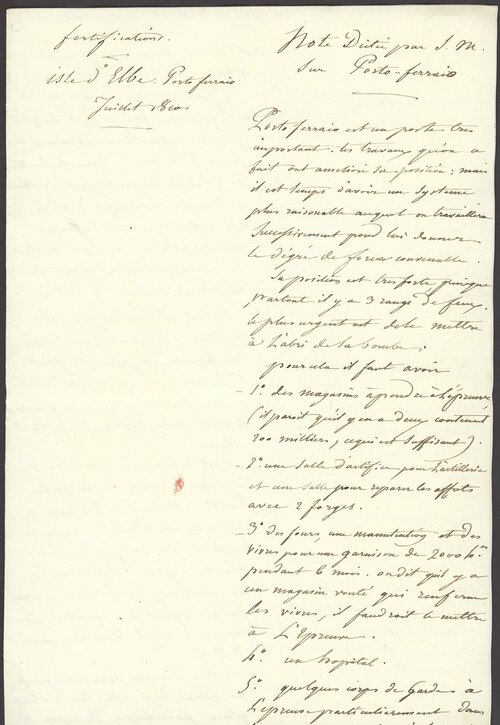 fortifications.
isle d'Elbe. Porto ferraio
Juillet 1810.
Note Dictée par S. M.
Sur Porto-ferraio
Porto ferraio est un poste très
important: les travaux qu'on a
fait ont amelioré sa position: mais
il est temps d'avoir un systeme
plus raisonable auquel on travaillera
successivement pour lui donner
le dégré de forces convenable.
Sa position est très forte, puisque
partout il y a 3 rangs de feux.
le plus urgent est de le mettre
à l'abri de la bombe;
pour cela il faut avoir
- 1° des magasins à poudre à l'épreuve
(il parait qu'il y en a deux contenant
200 milliers, ce qui est suffisant).
- 2° une salle d'artifice pour l'artillerie
et une salle pour reparer les affuts
avec 2 forges.
- 3° des fours, une manutention et des
vivres pour une garnison de 2000 h.es
pendant 6 mois. on dit qu'il y a
un magasin vouté qui renferme
les vivres, il faudroit le mettre
à l'Epreuve.
4° un hopital.
5° quelques corps de Gardes à
l'épreuve particulierement dans